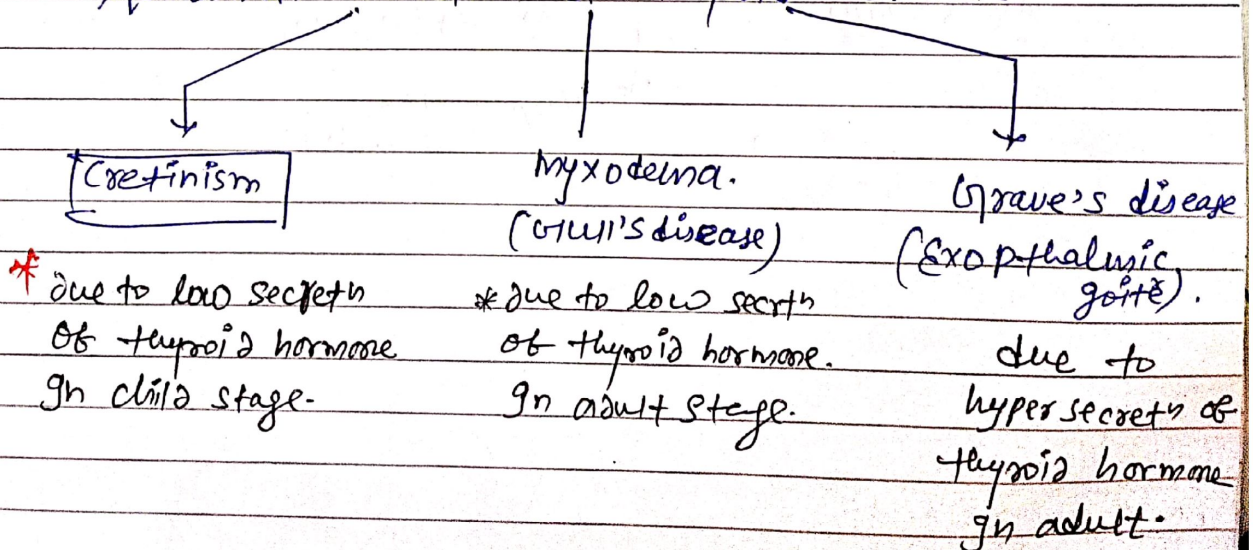 Cretinism
* due to low secretn
of thyroid hormone
In child stage.
Myxodema.
(Gull's disease)
* due to low secrtn
of thyroid hormone.
In adult stage.
Grave's disease
(Exopthalmic
goite).
due to
hypersecretn of
thyroid hormone
In adult.